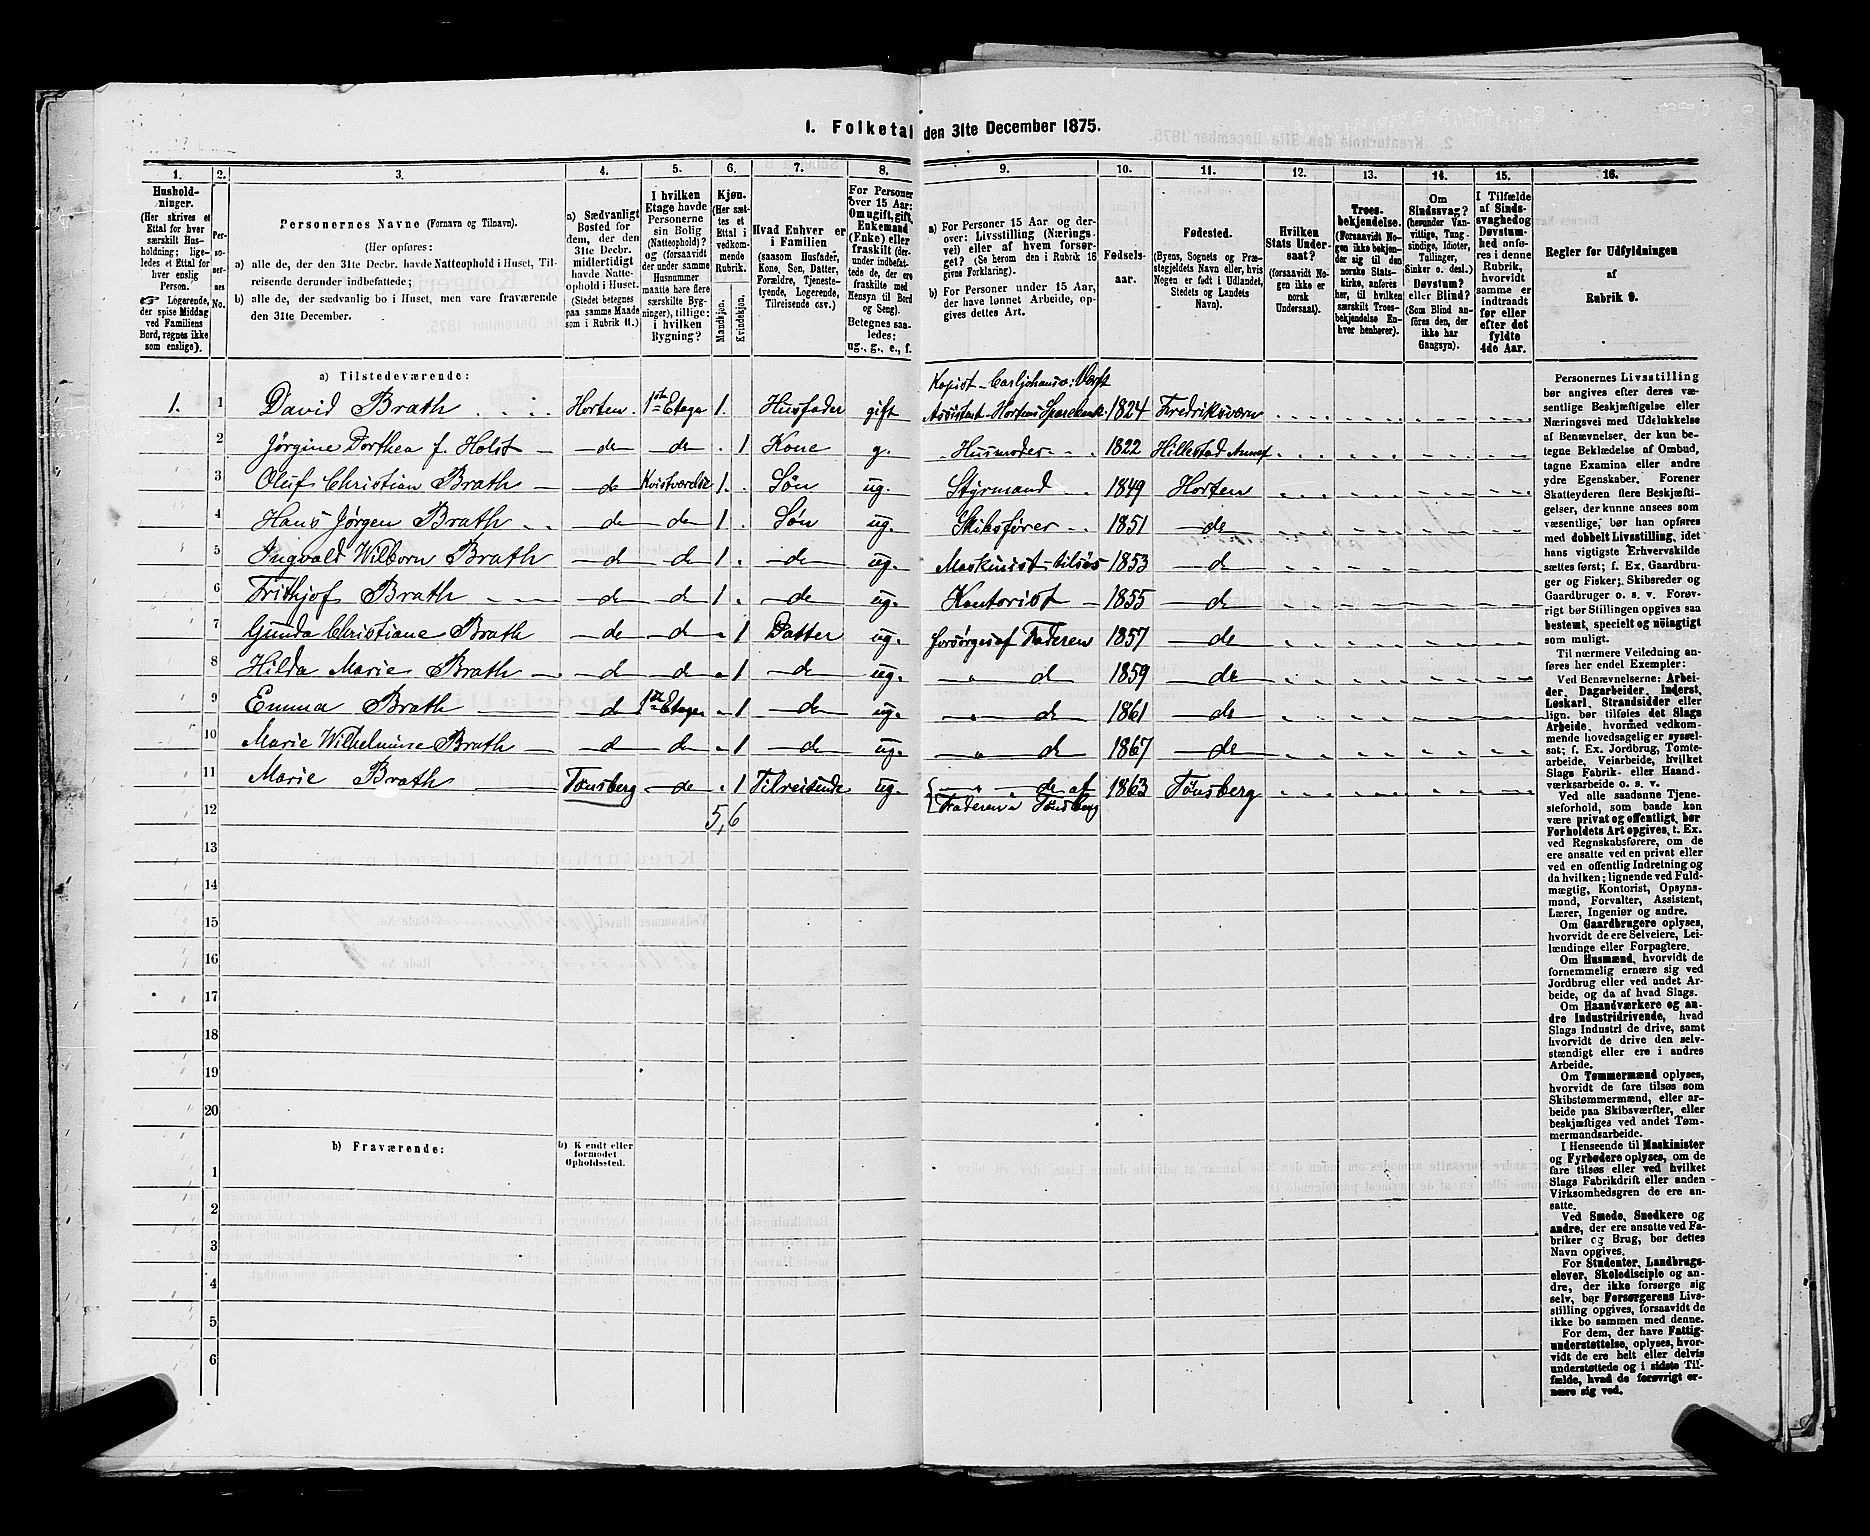 1. Folketal den 31te December 1875.
1. 2. 3. 4. 5. 6. 7. 8. 9. 10. 11. 12. 13. 14. 15. 16.
Husholdninger.
(Her skrives et
Ettal for hver
særskilt Husholdning;
ligeledes et Ettal for
hver enslig
Person.
☞ Logerende,
der spise Middag
ved Familiens
Bord, regnes ikke
som enslige).
Personernes No.
Personernes Navne (Fornavn og Tilnavn).
(Her opføres:
a) alle de, der den 31te Decbr. havde Natteophold i Huset, Tilreisende derunder indbefattede;
b) alle de, der sædvanlig bo i Huset, men vare fraværende
den 31te December.
a) Sædvanligt
Bosted for
dem, der den
31te Decbr.
midlertidigt
havde Natteophold i Huset.
(Stedet betegnes
paa samme Maade
som i Rubrik 11.)
I hvilken
Etage havde
Personerne
sin Bolig
(Natteophold)?
og (forsaavidt
der under samme
Husnummer
maatte høre flere
særskilte Bygninger), tillige:
i hvilken
Bygning?
Kjøn.
(Her sættes et
Ettal i
vedkommende
Rubrik.
Mandkjøn.
Kvindekjøn.
Hvad Enhver er
i Familien
(saasom Husfader,
Kone, Søn, Datter,
Forældre, Tjenestetyende, Logerende,
Tilreisende osv.)
For Personer
over 15 Aar:
Om ugift, gift,
Enkemand
(Enke) eller
fraskilt (derunder indbefattede de, der ere
fraskilte med
Hensyn til Bord
og Seng).
Betegnes saaledes:
ug., g., e., f.
a) For Personer 15 Aar og derover: Livsstilling (Næringsvei) eller af hvem forsørget? (Se herom den i Rubrik 16
givne Forklaring).
b) For Personer under 15 Aar,
der have lønnet Arbeide, opgives dettes Art.
Fødselsaar.
Fødested.
(Byens, Sognets og Præstegjeldets Navn eller, hvis
Nogen er født i Udlandet,
Stedets og Landets
Navn).
Hvilken
Stats Undersaat?
(forsaavidt Nogen ikke er
norsk
Undersaat).
Troesbekjendelse.
(Forsaavidt Nogen ikke bekjender sig til den
norske Statskirke, anføres
her, til hvilken
særskilt Troesbekjendelse Enhver henhører).
Om
Sindssvag?
(herunder Vanvittige, Tungsindige, Idioter,
Tullinger,
Sinker o. desl.)
Døvstum?
eller Blind?
(Som Blind anføres den, der
ikke har
Gangsyn).
I Tilfælde
af Sindssvaghed og
Døvstumhed anføres i denne
Rubrik,
hvorvidt
samme er
indtraadt
før eller
efter det
fyldte
4de Aar.
Regler for Udfyldningen
af
Rubrik 9.
a) Tilstedeværende:
Kopist - Carljohansv: Værft
1. 1 David Brath Horten. 1ste Etage 1. Husfader gift Assistent - Hortens Sparebank 1824 Fredriksværn
2 Jørgine Dorthea f. Holst - de - - de - 1 Kone g. Husmoder 1822 Hillestad Annex
3 Oluf Christian Brath - de Kvistværelse 1. Søn ug. Styrmand 1849 Horten
4 Hans Jørgen Brath - de - de 1 Søn ug. Skibsfører 1851 - de
5 Ingvald Wilborn Brath - de - de 1 - de ug. Maskinist - tilsøs 1853 - d
6 Frithjof Brath - de - de 1 - de ug. Kontorist - 1855 - de
7 Gunda Christiane Brath - de - d 1 Datter ug. forsørges af Faderen 1857 - de
8 Hilda Marie Brath - de - de 1 - de ug. - " d 1859 - de
9 Emma Brath - de 1ste Etage 1 - de ug. - " de 1861 - de
10 Marie Wilhelmine Brath - d de 1 - de ug. - " de 1867 - de
11 Marie Brath Tønsberg - de 1 Tilreisende ug. - " de af 1863 Tønsberg
Faderen i Tønsberg
12 5,6
13
14
15
16
17
18
19
20
b) Fraværende:
b) Kjendt eller
formodet
Opholdssted.
1
2
3
4
5
6
Personernes Livsstilling
bør angives efter deres væsentlige Beskjæftigelse eller
Næringsvei med Udelukkelse
af Benævnelser, der kun betegne Beklædelse af Ombud,
tagne Examina eller andre
ydre Egenskaber. Forener
Skatteyderen flere Beskjæftigelser, der kunne ansees som
væsentlige, bør han opføres
med dobbelt Livsstilling, idet
hans vigtigste Erhvervskilde
sættes først; f. Ex. Gaardbruger og Fisker; Skibsreder og
Gaardbruger o. s. v. Forøvrigt bør Stillingen opgives saa
bestemt, specielt og nöiagtigt
som muligt.
Til nærmere Veiledning anføres her endel Exempler:
Ved Benævnelserne: Arbeider, Dagarbeider, Inderst,
Løskarl, Strandsidder eller
lign. bør tilføies det Slags
Arbeide, hvormed vedkommende hovedsagelig er sysselsat; f. Ex. Jordbrug, Tomtearbeide, Veiarbeide, hvilket
Slags Fabrik- eller Haandværksarbeide o. s. v.
Ved alle saadanne Tjenesteforhold, som baade kan
være privat og offentligt, bør
Forholdets Art opgives, t. Ex.
ved Regnskabsførere, om de
ere ansatte ved en privat eller
ved en offentlig Indretning og
da hvilken; lignende ved Fuldmægtig, Kontorist, Opsynsmand, Forvalter, Assistent,
Lærer, Ingeniør og andre.
Om Gaardbrugere oplyses,
hvorvidt de ere Selveiere, Leilændinge eller Forpagtere.
Om Husmænd, hvorvidt de
fornemmelig ernære sig ved
Jordbrug eller ved andet Arbeide, og da af hvad Slags.
Om Haandværkere og andre Industridrivende, hvad
Slags Industri de drive, samt
hvorvidt de drive den selvstændigt eller ere i andres
Arbeide.
Om Tømmermænd oplyses,
hvorvidt de fare tilsøs som
Skibstømmermænd, eller arbeide paa Skibsværfter, eller
beskjæftiges ved andet Tømmermandsarbeide.
I Henseende til Maskinister
og Fyrbødere oplyses, om de
fare tilsøs eller ved hvilket
Slags Fabrikdrift eller anden
Virksomhedsgren de ere ansatte.
Ved Smede, Snedkere og
andre, der ere ansatte ved Fabriker og Brug, bør dettes
Navn opgives.
For Studenter, Landbrugselever, Skoledisciple og andre, der ikke forsørge sig
selv, bør Forsørgerens Livsstilling opgives, forsaavidt de
ikke bo sammen med denne.
For dem, der have Fattigunderstøttelse, oplyses, hvorvidt de ere helt eller delvis
understøttede og i sidste Tilfælde, hvad de forøvrigt ernære sig ved.